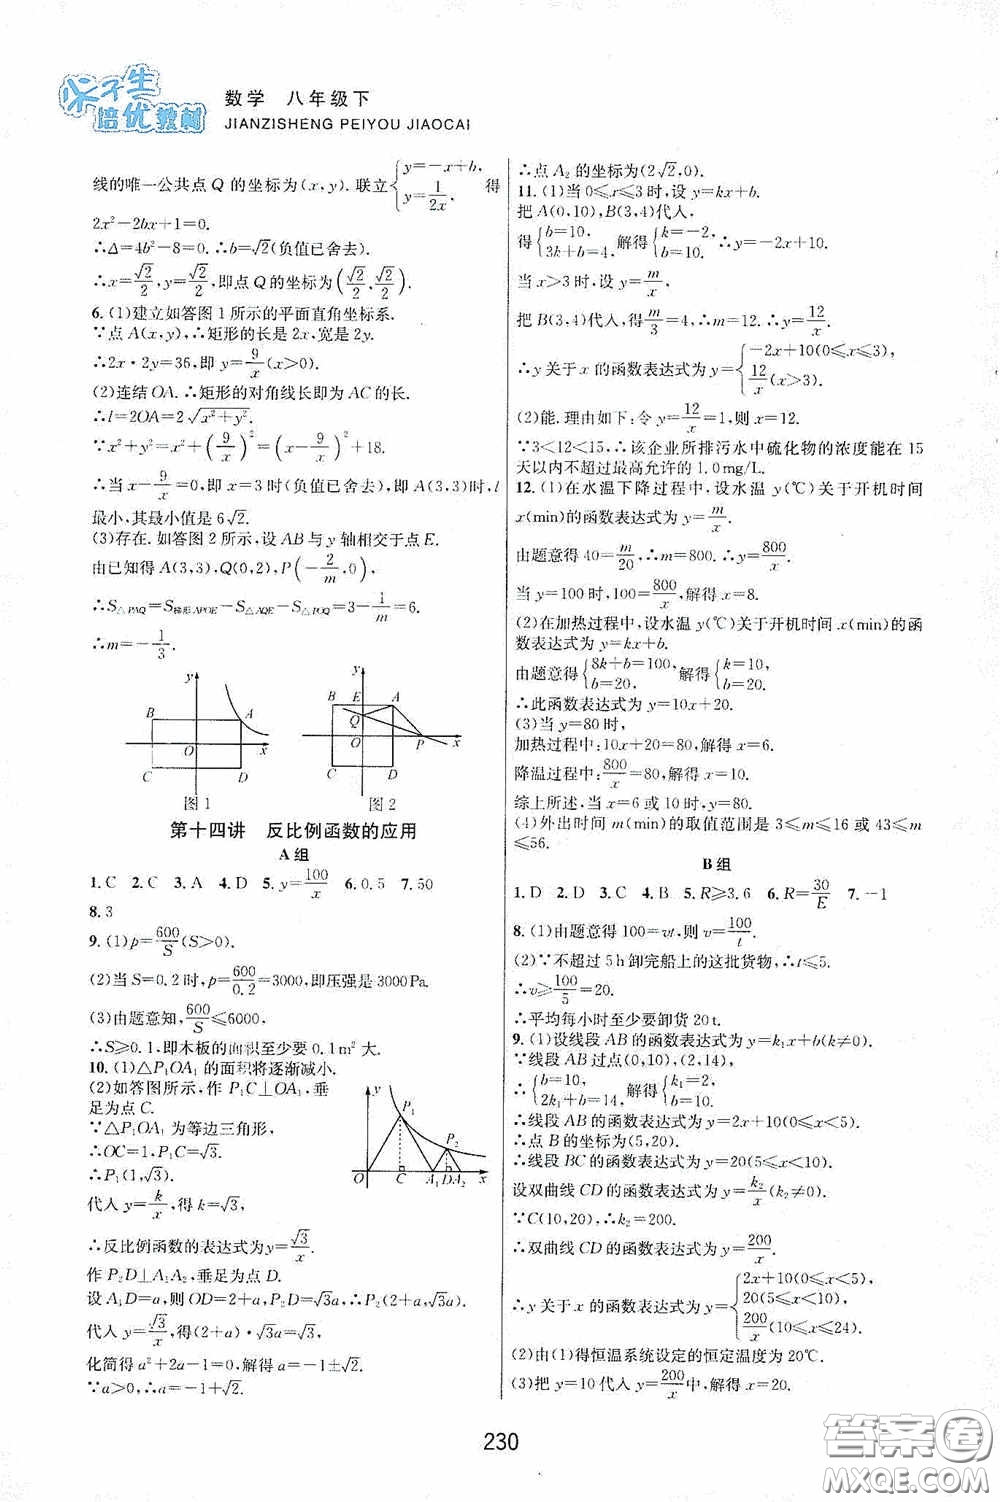 尖子生
培优教材
数学 八年级下
JIANZISHENG PEIYOU JIAOCAI
线的唯一公共点 Q 的坐标为(x,y). 联立{y=-x+b, y=1/2x, 得
2x²-2bx+1=0.
∴Δ=4b²-8=0. ∴b=√2(负值已舍去).
∴x=√2/2,y=√2/2,即点 Q 的坐标为(√2/2,√2/2).
6. (1)建立如答图 1 所示的平面直角坐标系.
∵点 A(x,y),∴矩形的长是 2x,宽是 2y.
∴2x·2y=36,即 y=9/x(x>0).
(2)连结 OA. ∴矩形的对角线长即为 AC 的长.
∴l=2OA=2√(x²+y²).
∵x²+y²=x²+(9/x)²=(x-9/x)²+18.
∴当 x-9/x=0,即 x=3 时(负值已舍去),即 A(3,3)时,l
最小,其最小值是 6√2.
(3)存在. 如答图 2 所示,设 AB 与 y 轴相交于点 E.
由已知得 A(3,3),Q(0,2),P(-2/m,0),
∴S△PAQ=S梯形APOE-S△AQE-S△POQ=3-1/m=6.
∴m=-1/3.
y
B
A
O
x
C
D
图 1
y
B
E
A
Q
O
P
x
C
D
图 2
第十四讲 反比例函数的应用
A 组
1. C 2. C 3. A 4. D 5. y=100/x 6. 0.5 7. 50
8. 3
9. (1)p=600/S(S>0).
(2)当 S=0.2 时,p=600/0.2=3000,即压强是 3000Pa.
(3)由题意知,600/S≤6000,
∴S≥0.1,即木板的面积至少要 0.1m² 大.
10. (1)△P₁OA₁ 的面积将逐渐减小.
(2)如答图所示,作 P₁C⊥OA₁,垂
足为点 C.
∵△P₁OA₁ 为等边三角形,
∴OC=1,P₁C=√3.
∴P₁(1,√3).
代入 y=k/x,得 k=√3,
∴反比例函数的表达式为 y=√3/x.
作 P₂D⊥A₁A₂,垂足为点 D.
设 A₁D=a,则 OD=2+a,P₂D=√3a,∴P₂(2+a,√3a).
代入 y=√3/x,得(2+a)·√3a=√3,
化简得 a²+2a-1=0,解得 a=-1±√2.
∵a>0,∴a=-1+√2.
y
P₁
P₂
O
C
A₁DA₂
x
∴点 A₂ 的坐标为(2√2,0).
11. (1)当 0≤x≤3 时,设 y=kx+b.
把 A(0,10),B(3,4)代入,
得{b=10, 3k+b=4, 解得{k=-2, b=10. ∴y=-2x+10.
当 x>3 时,设 y=m/x.
把 B(3,4)代入,得m/3=4,∴m=12. ∴y=12/x.
∴y 关于 x 的函数表达式为 y={-2x+10(0≤x≤3), 12/x(x>3).
(2)能. 理由如下:令 y=12/x=1,则 x=12.
∵3<12<15,∴该企业所排污水中硫化物的浓度能在 15
天以内不超过最高允许的 1.0mg/L.
12. (1)在水温下降过程中,设水温 y(℃)关于开机时间
x(min)的函数表达式为 y=m/x.
由题意得 40=m/20,∴m=800. ∴y=800/x.
当 y=100 时,100=800/x,解得 x=8.
(2)在加热过程中,设水温 y(℃)关于开机时间 x(min)的函
数表达式为 y=kx+b.
由题意得{8k+b=100, b=20, 解得{k=10, b=20.
∴此函数表达式为 y=10x+20.
(3)当 y=80 时,
加热过程中:10x+20=80,解得 x=6.
降温过程中:800/x=80,解得 x=10.
综上所述,当 x=6 或 10 时,y=80.
(4)外出时间 m(min)的取值范围是 3≤m≤16 或 43≤m
≤56.
B 组
1. D 2. D 3. C 4. B 5. R≥3.6 6. R=30/E 7. -1
8. (1)由题意得 100=vt,则 v=100/t.
(2)∵不超过 5h 卸完船上的这批货物,∴t≤5.
∴v≥100/5=20.
∴平均每小时至少要卸货 20t.
9. (1)设线段 AB 的函数表达式为 y=k₁x+b(k≠0).
∵线段 AB 过点(0,10),(2,14),
∴{b=10, 2k₁+b=14, 解得{k₁=2, b=10.
∴线段 AB 的函数表达式为 y=2x+10(0≤x<5).
∴点 B 的坐标为(5,20).
∴线段 BC 的函数表达式为 y=20(5≤x<10).
设双曲线 CD 的函数表达式为 y=k₂/x(k₂≠0).
∵C(10,20),∴k₂=200.
∴双曲线 CD 的函数表达式为 y=200/x.
∴y 关于 x 的函数表达式为 y={2x+10(0≤x<5), 20(5≤x<10), 200/x(10≤x≤24).
(2)由(1)得恒温系统设定的恒定温度为 20℃.
(3)把 y=10 代入 y=200/x中,解得 x=20.
230
答案圈
MXQE.COM